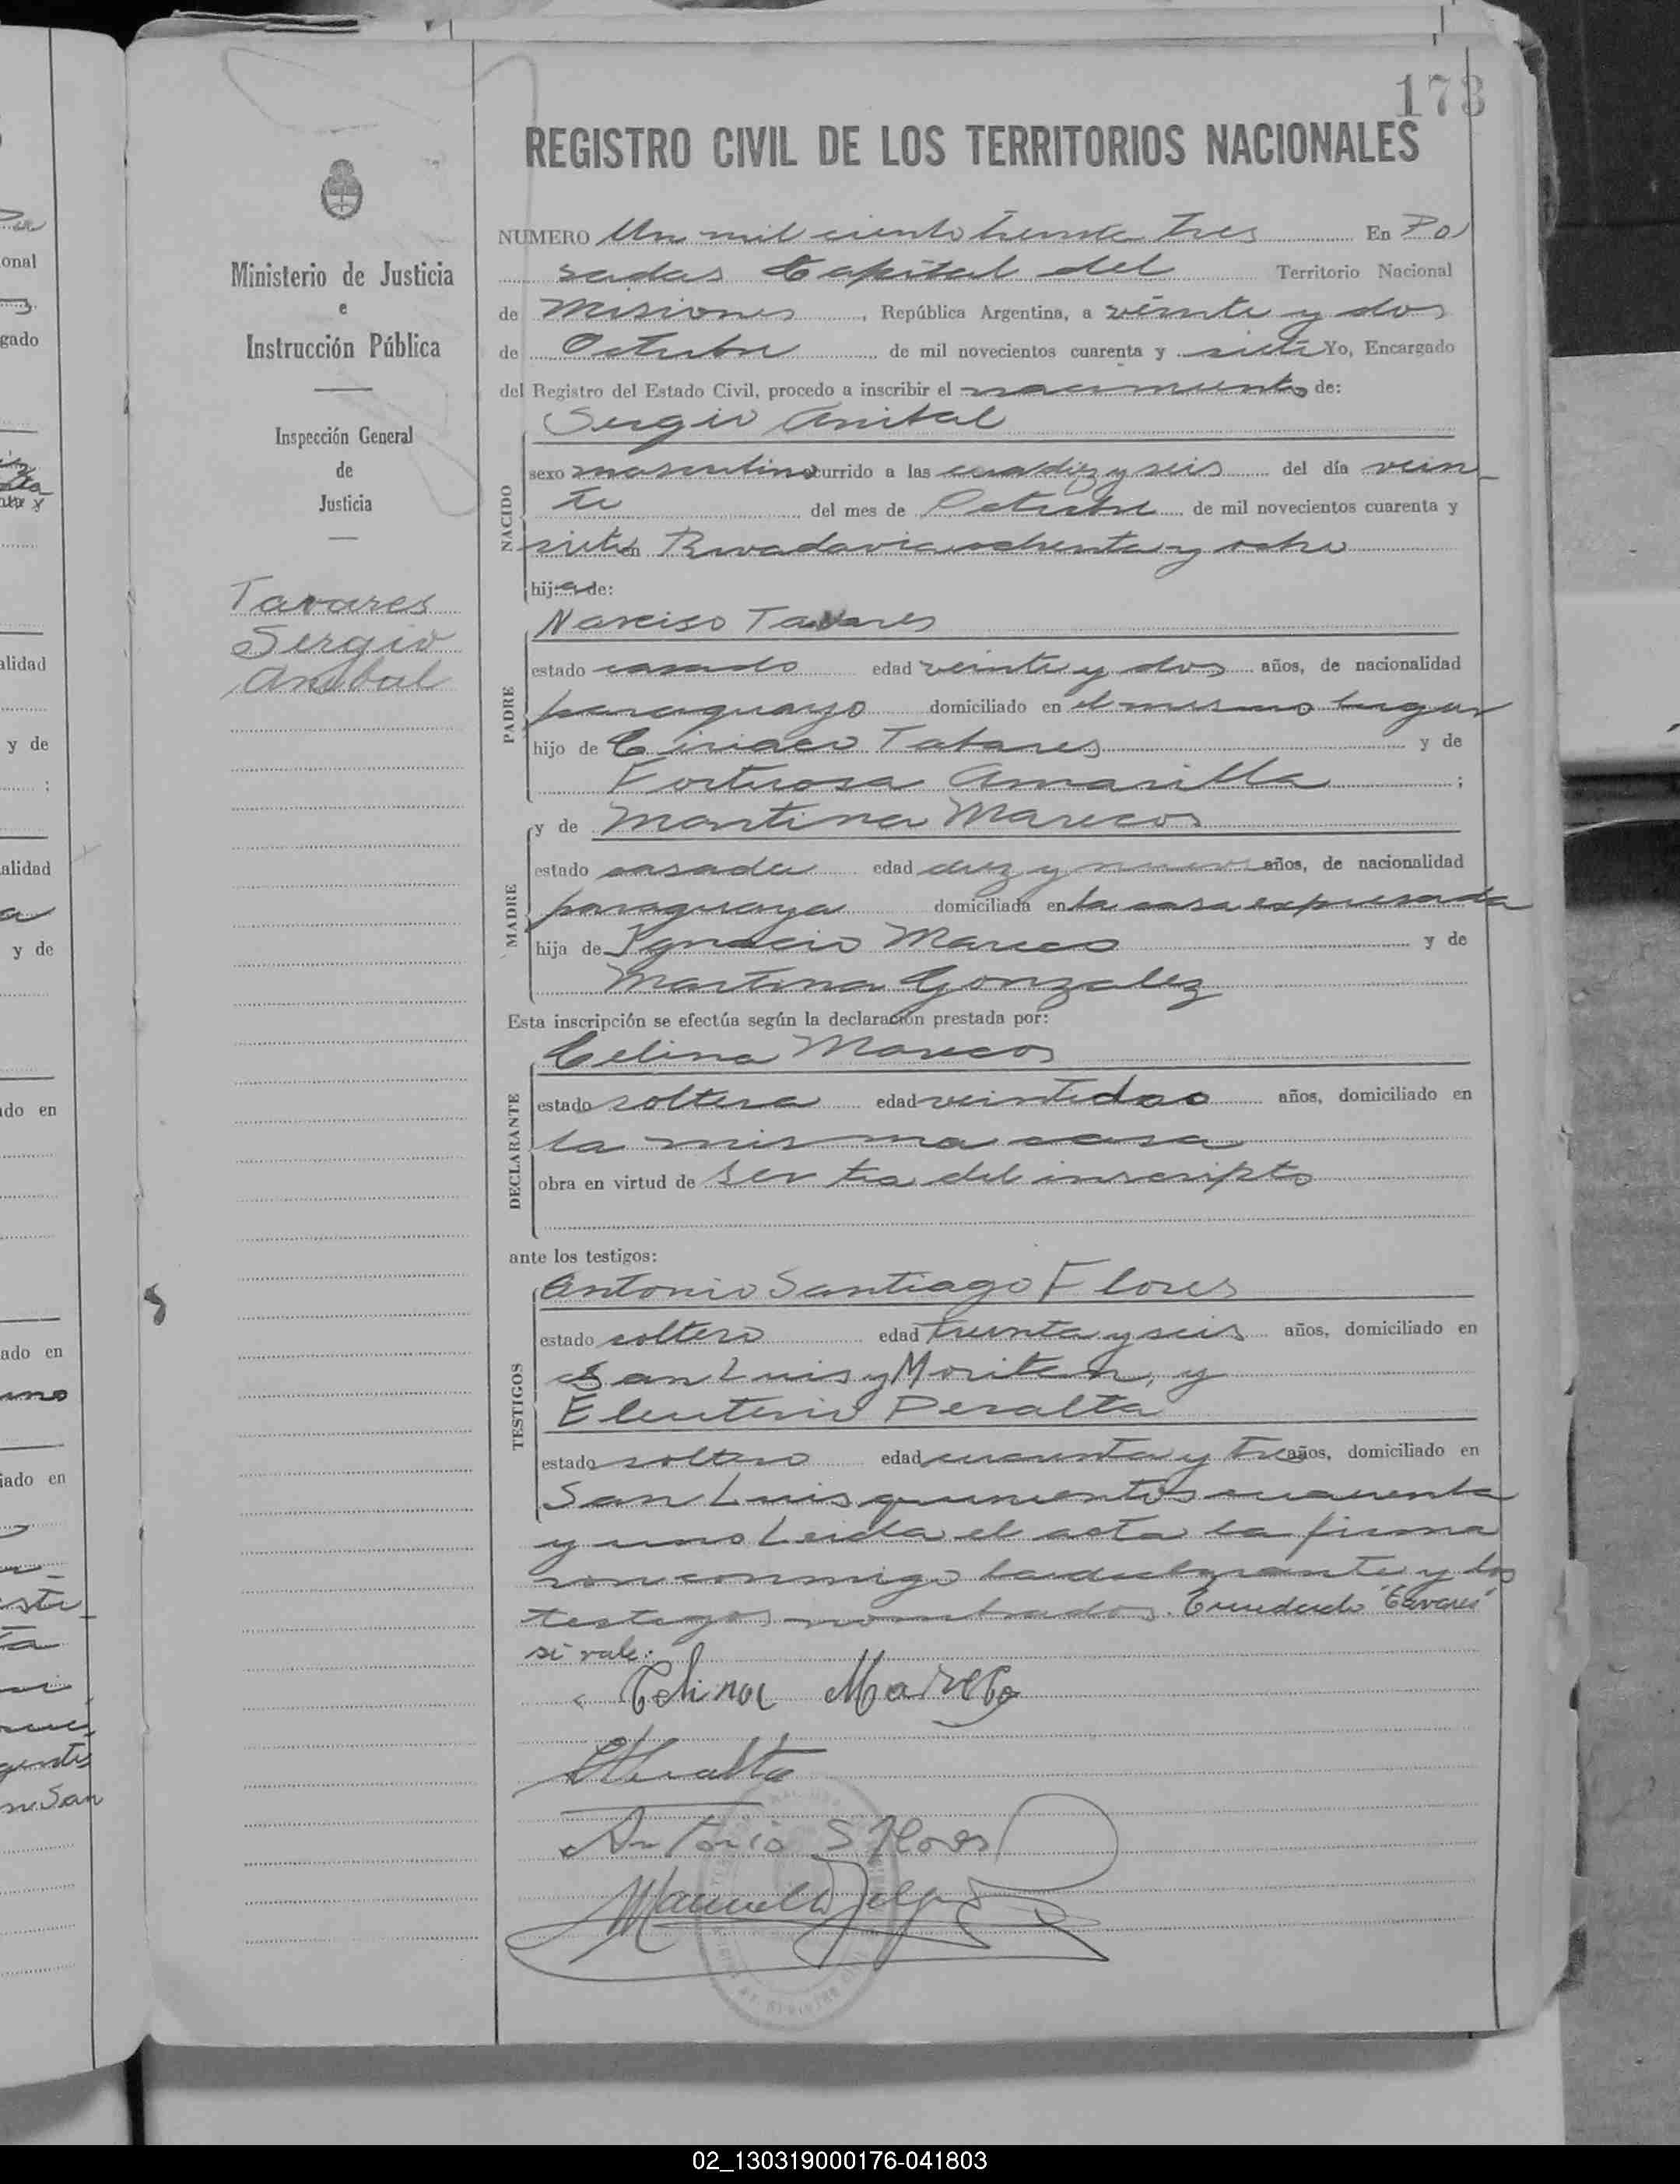 173
REGISTRO CIVIL DE LOS TERRITORIOS NACIONALES
Ministerio de Justicia
e
Instrucción Pública
Inspección General
de
Justicia
Tavares
Sergio
Anibal
NUMERO Un mil ciento treinta tres En Po
sadas Capital del Territorio Nacional
de Misiones, República Argentina, a veinte y dos
de Octubre de mil novecientos cuarenta y siete Yo, Encargado
del Registro del Estado Civil, procedo a inscribir el nacimiento de:
Sergio Anibal
NACIDO
sexo masculino ocurrido a las diez y seis del día vein
te del mes de Octubre de mil novecientos cuarenta y
siete en Rivadavia ochenta y ocho
hijo de:
Narciso Tavares
PADRE
estado casado edad veinte y dos años, de nacionalidad
paraguayo domiciliado en el mismo lugar
hijo de Ciriaco Tabares y de
Fortuosa Amarilla;
y de Martina Marecos
MADRE
estado casada edad diez y nueve años, de nacionalidad
paraguaya domiciliada en la casa expresada
hija de Ignacio Mareco y de
Martina Gonzalez
Esta inscripción se efectúa según la declaración prestada por:
Celina Marecos
DECLARANTE
estado soltera edad veintidos años, domiciliado en
la misma casa
obra en virtud de ser tia del inscripto
ante los testigos:
Antonio Santiago Flores
TESTIGOS
estado soltero edad treinta y seis años, domiciliado en
San Luis y Moriten, y
Eleuterio Peralta
estado soltero edad cuarenta y tres años, domiciliado en
San Luis quinientos cuarenta
y uno Leida el acta la firma
ron conmigo la declarante y los
testigos nombrados. Enmendado "Tavares"
si vale.
Celina Mareco
EPeralta
Antonio S Flores
02_130319000176-041803